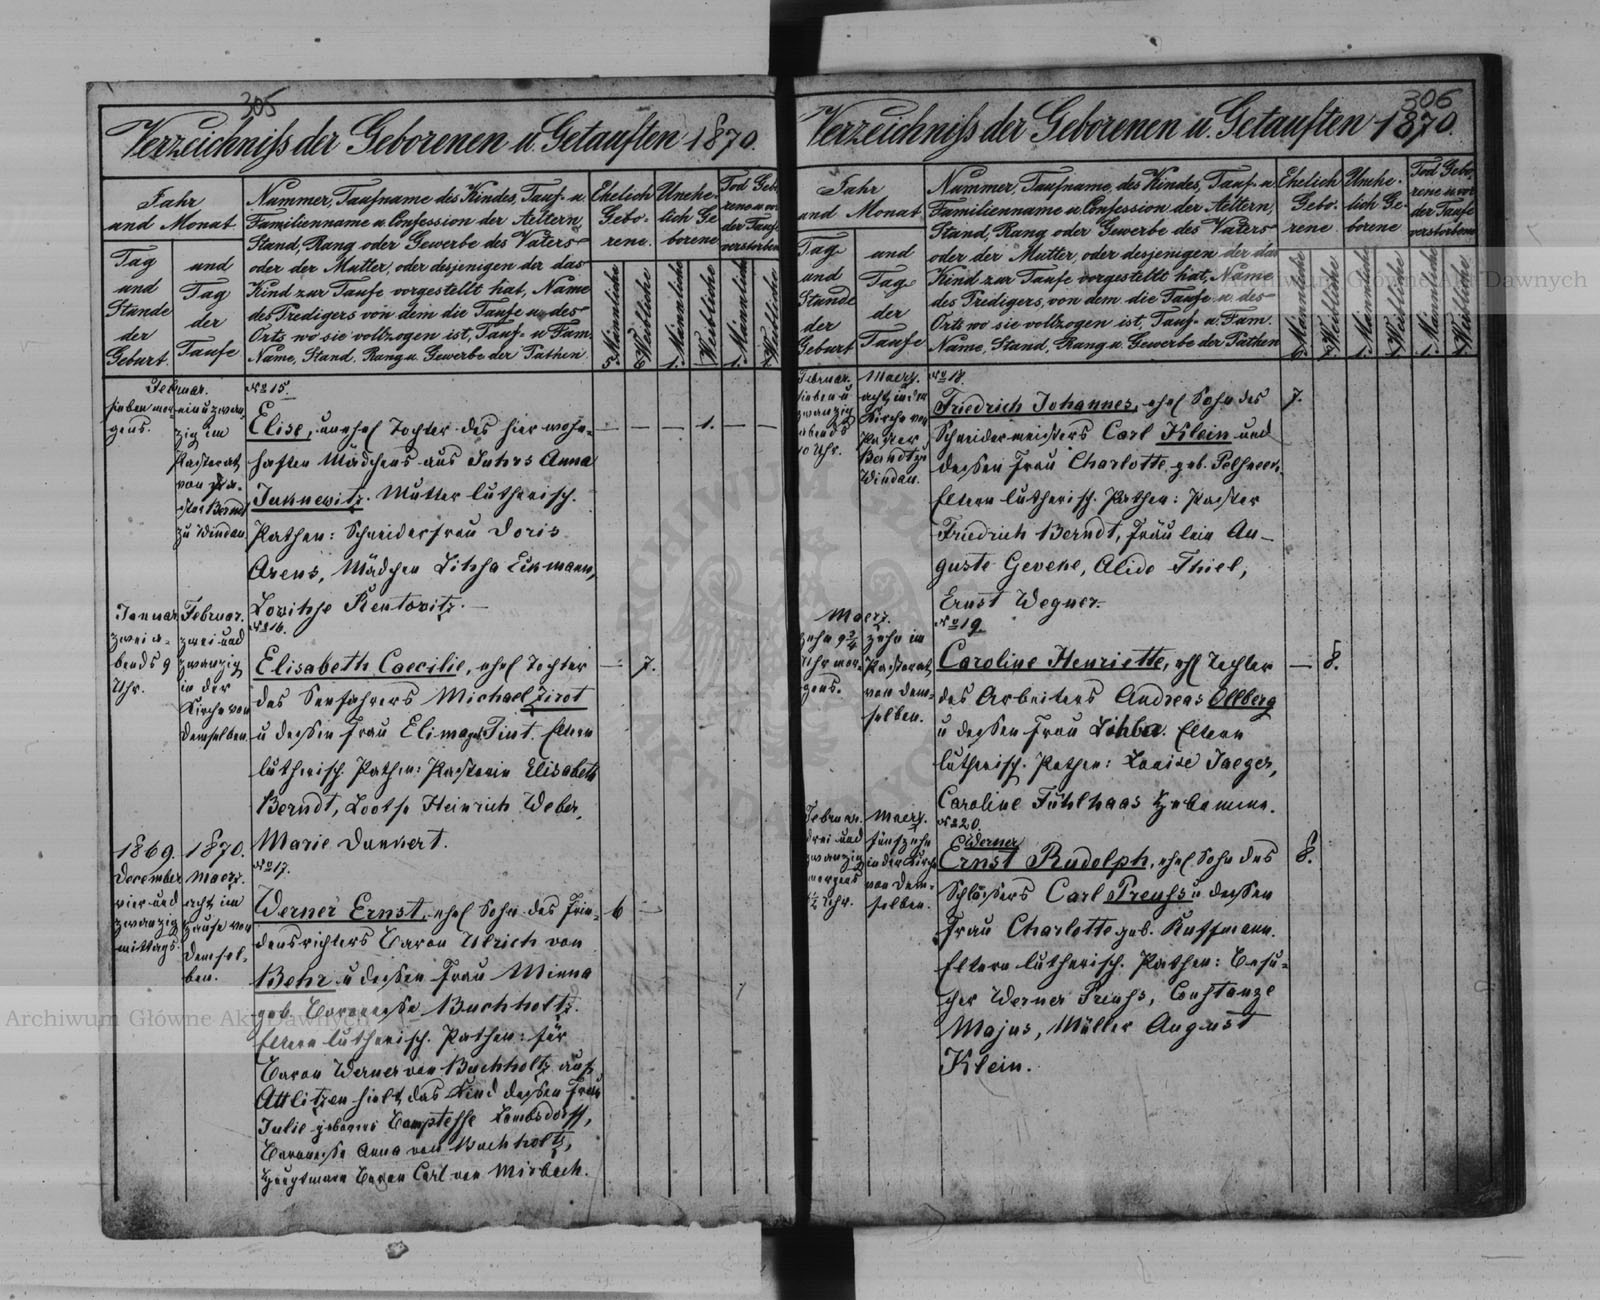 305
Verzeichniß der Geborenen u. Getauften 1870.
Jahr
und Monat
Tag
und
Stunde
der
Geburt
und
Tag
der
Taufe
Nummer, Taufname des Kindes, Tauf- u.
Familienname u. Confession der Aeltern,
Stand, Rang oder Gewerbe des Vaters
oder der Mutter, oder desjenigen der das
Kind zur Taufe vorgestellt hat, Name
des Predigers von dem die Taufe u. des
Orts wo sie vollzogen ist, Tauf- u. Fam.
Name, Stand, Rang u. Gewerbe der Pathen.
Ehelich
Gebo-
rene.
Unehe-
lich Ge
borene
Tod Gebo
rene u. vor
der Taufe
verstorbene
Männliche
Weibliche
Männliche
Weibliche
Männlich
Weibliche
5. 6. 1. 1.
Februar.
sieben mor-
gens.
ein u zwan-
zig im
Pastorat
von Pa-
stor Berndt
zu Windau
No 15.
Elise, unehel Tochter des hier wohn-
haften Mädchens aus Inhrs Anna
Juknewitz. Mutter lutherisch.
Pathen: Schneiderfrau Doris
Arens, Mädchen Lihsa Eckmann,
Lowihse Rentowitz.
— — — 1. — —
Januar
zwei a-
bends 9
Uhr.
Februar.
zwei und
zwanzig
in der
Kirche von
demselben
No 16.
Elisabeth Caecilie, ehel Tochter
— 7.
des Seefahrers Michael Zirot
u dessen Frau Elima geb Tint. Eltern
lutherisch. Pathen: Pastorin Elisabeth
Berndt, Lootse Heinrich Weber,
Marie Dannert.
1869.
December
vier und
zwanzig
mittags.
1870.
Maerz.
acht im
Hause von
demsel-
ben.
No 17.
Werner Ernst, ehel Sohn des Frie-
6 —
densrichters Baron Ulrich von
Behr u dessen Frau Minna
geb. Baronesse Buchholtz.
Eltern lutherisch. Pathen: für
Baron Werner von Buchholtz auf
Attlitzen hielt das Kind dessen Frau
Julie geborene Comptesse Lambsdorff,
Baronesse Anna von Buchholtz,
Hauptmann Baron Carl von Mirbach.
306
Verzeichniß der Geborenen u. Getauften 1870.
Jahr
und Monat
Tag
und
Stunde
der
Geburt
und
Tag
der
Taufe
Nummer, Taufname, des Kindes, Tauf- u.
Familienname u. Confession der Aeltern,
Stand, Rang oder Gewerbe des Vaters
oder der Mutter, oder desjenigen der das
Kind zur Taufe vorgestellt hat, Name
des Predigers, von dem die Taufe u. des
Orts wo sie vollzogen ist, Tauf- u. Fam.
Name, Stand, Rang u. Gewerbe der Pathen
Ehelich
Gebo-
rene
Unehe-
lich Ge-
borene
Tod Gebo
rene u. vor
der Taufe
verstorbene
Männliche
Weibliche
Männliche
Weibliche
Männlich
Weibliche
6. 7. 1. 1. 1.
Februar.
sieben u
zwanzig
abends
10 Uhr.
Maerz.
acht in der
Kirche von
Pastor
Berndt zu
Windau.
No 18.
Friedrich Johannes, ehel Sohn des
7.
Schneidermeisters Carl Klein und
dessen Frau Charlotte geb.
Eltern lutherisch. Pathen: Pastor
Friedrich Berndt, Fräulein Au-
guste Geveke, Alide Thiel,
Ernst Wegner.
Maerz
zehn 9 3/4
Uhr mor-
gens.
zehn im
Pastorat
von dem-
selben.
No 19.
Caroline Henriette, ehl Tochter
— 8.
des Arbeiters Andreas Ollberg
u dessen Frau Lihba. Eltern
lutherisch. Pathen: Louise Jaeger,
Caroline Fühlhaas Hebamme.
Februar.
drei und
zwanzig
morgens
1/2 Uhr.
Maerz.
fünfzehn
in der Kirche
von dem-
selben.
No 20.
Werner
Ernst Rudolph, ehel Sohn des
8.
Schlossers Carl Preuhs u dessen
Frau Charlotte geb. Kuffmann.
Eltern lutherisch. Pathen: Besu-
cher Werner Preuhs, Constanze
Majus, Müller August
Klein.
Archiwum Główne Akt Dawnych
Archiwum Główne Akt Dawnych